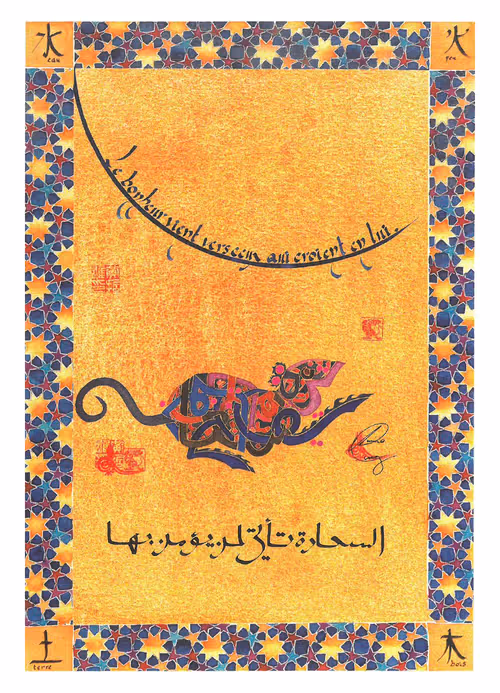 水
eau
火
feu
Le bonheur vient vers ceux qui croient en lui.
السعادة تأتي لمن يؤمن بها
土
terre
木
bois